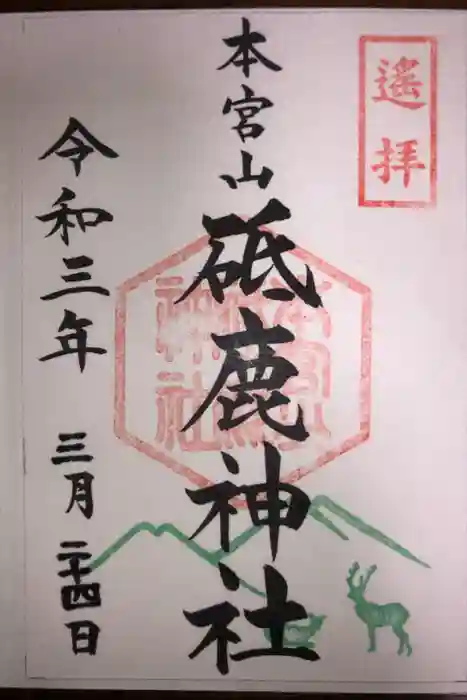 遙拝
本宮山
砥鹿神社
令和三年
三月二十四日